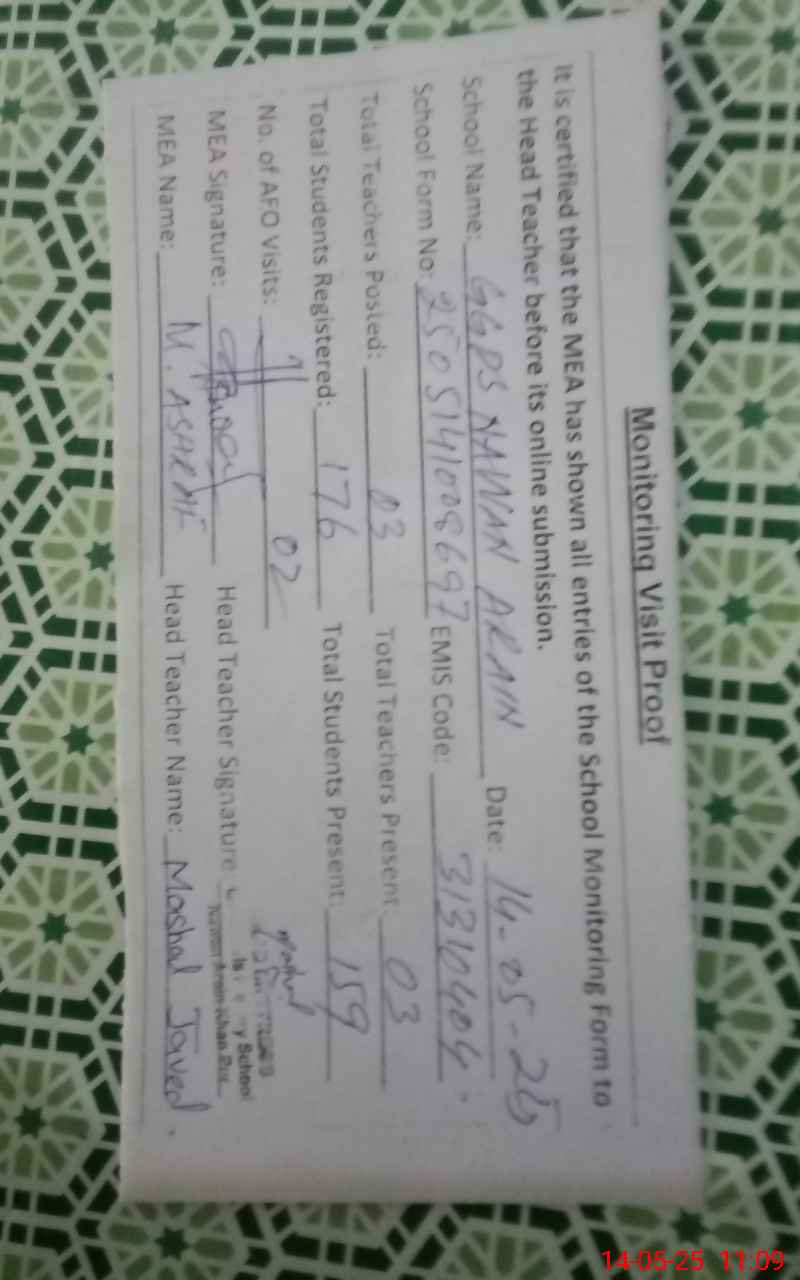 Monitoring Visit Proof
It is certified that the MEA has shown all entries of the School Monitoring Form to
the Head Teacher before its online submission.
School Name: GGPS NAWAN ARAIN Date: 14-05-25
School Form No: 2505141008697 EMIS Code: 31340404
Total Teachers Posted: 03 Total Teachers Present: 03
Total Students Registered: 176 Total Students Present: 159
No. of AFO Visits: 02
MEA Signature: Head Teacher Signature:
School
MEA Name: M. ASHRAF Head Teacher Name: Mashal Javed.
14-05-25 11:09